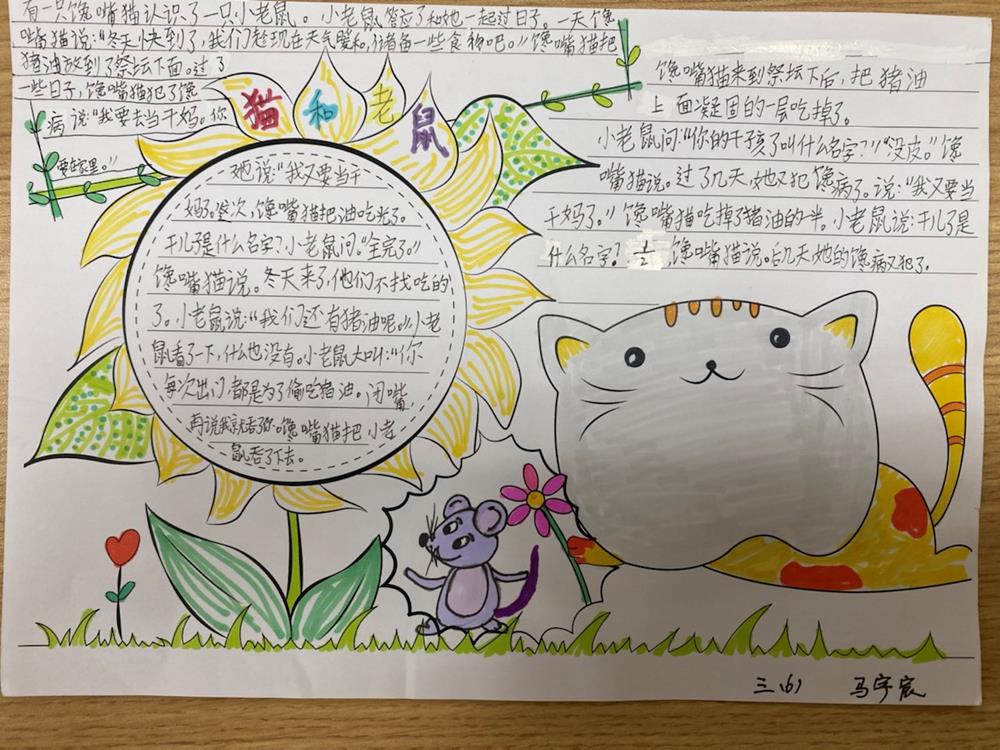 有一只馋嘴猫认识了一只小老鼠。小老鼠答应了和她一起过日子。一天馋
嘴猫说:“冬天快来到了,我们趁现在天气暖和,储备一些食物吧。”馋嘴猫把
猪油放到了祭坛下面。过了
一些日子,馋嘴猫犯了馋
病说:“我要去当干妈。你
要在家里。”
猫和老鼠
馋嘴猫来到祭坛下后,把猪油
上面凝固的一层吃掉了。
小老鼠问:“你的干孩子叫什么名字?”“没皮。”馋
嘴猫说。过了几天,她又犯馋病了。说:“我又要当
干妈了。”馋嘴猫吃掉了猪油的一半。小老鼠说:干儿子是
什么名字?一半馋嘴猫说。后几天她的馋病又犯了。
她说:“我又要当干
妈了。这次,馋嘴猫把油吃光了。
干儿子是什么名字?小老鼠问。“全完了”
馋嘴猫说。冬天来了,他们不找吃的
了。小老鼠说:“我们还有猪油呢。”小老
鼠看了一下,什么也没有。小老鼠大叫:“你
每次出门都是为了偷吃猪油。闭嘴
再说我就吞了你。馋嘴猫把小老
鼠吞了下去。
三(6) 马宇宸